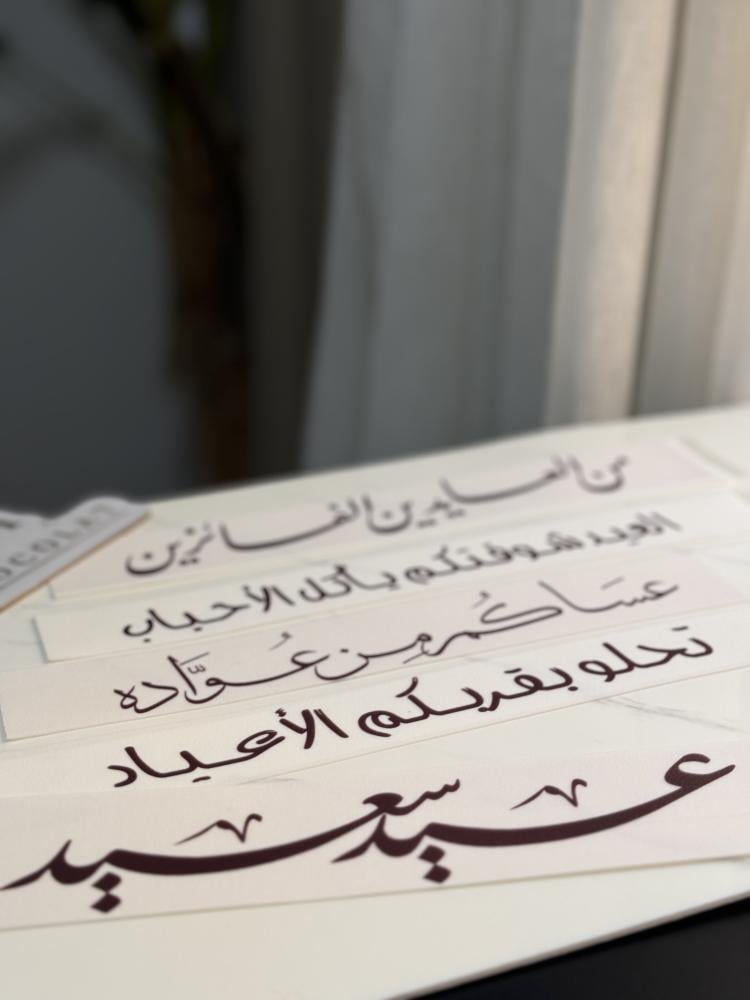 من العايدين الفائزين
العيد شوفتكم يا كل الأحباب
عساكم من عوّاده
تحلو بقربكم الأعياد
عيد سعيد